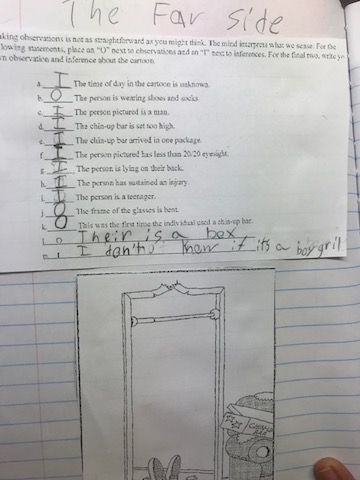 The Far Side
aking observations is not as straightforward as you might think. The mind interprets what we sense. For the
lowing statements, place an "O" next to observations and an "I" next to inferences. For the final two, write yo
n observation and inference about the cartoon.
a. I The time of day in the cartoon is unknown.
b. O The person is wearing shoes and socks.
c. I The person pictured is a man.
d. I The chin-up bar is set too high.
e. I The chin-up bar arrived in one package.
f. I The person pictured has less than 20/20 eyesight.
g. I The person is lying on their back.
h. I The person has sustained an injury.
i. I The person is a teenager.
j. O The frame of the glasses is bent.
k. O This was the first time the individual used a chin-up bar.
l. O Their is a box
m. I I don't know if it's a boy gril